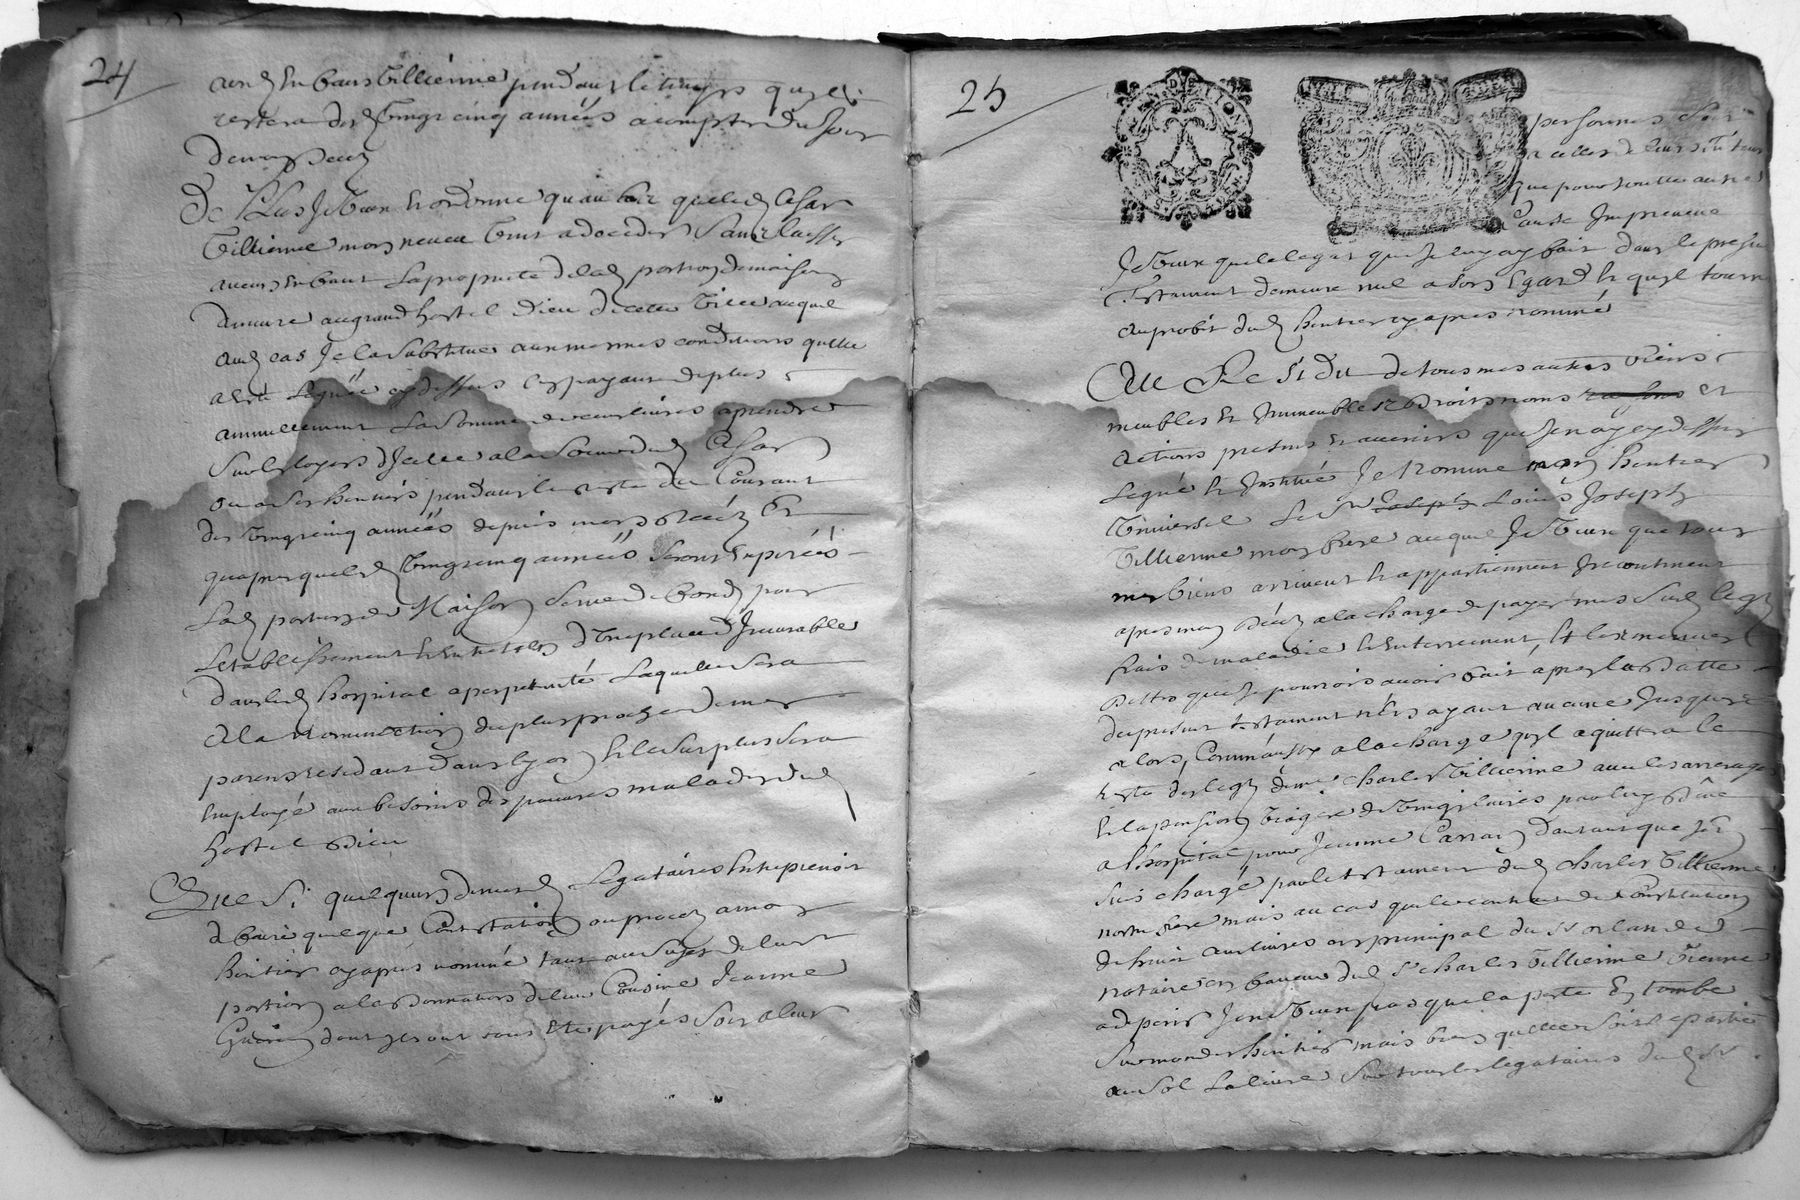 24
aud enfans Tillierme pendant le temps quil
restera des vingt cinq années a compter du jour
de mon deces
De Plus Je veux et ordonne qu'au cas que led Cesar
Tillierme mon neveu vint a deceder sans laisser
aucuns enfans la proprieté de lad portion de maison
demeure au grand hostel Dieu de cette ville auquel
aud cas Je la substitue aux mesmes conditions quelle
a esté leguée cy dessus en payant de plus
annuellement la somme de livres a prendre
sur les loyers d'Icelle a la dud Cesar
ou a ses heritiers pendant le reste du Courant
des vingt cinq années depuis mon deces Et
quapres que les vingt cinq années seront expirées
Lad portion de Maison serve de fond pour
letablissement et entretien d'une place d'Incurable
dans led hospital a perpetuité laquelle sera
a la nomination du plus proche de mes
parens residant dans Lyon et le surplus sera
employé aux besoins des pauvres malades dud
hostel Dieu
Que Si quelquuns de mesd Legataires entreprenoit
de faire quelque Contestation ou proces a mon
heritier cy apres nommé tant au sujet de leur
portion a la donnation de leur Cousine Jeanne
dont ils ont tous esté payés soit a leur
25
personnes soit
a celles de leurs
que pour toutte autre
Cause Impreveue
Je veux que le legat que Je luy ay fait dans le present
Testament demeure nul a son Egard et quil tourne
au profit dud heritier cy apres nommé
Au Residu de tous mes autres biens
meubles et Immeubles droits noms et
actions presens et avenirs que Je nay cy dessus
Legué et Institué Je Nomme mon heritier
Universel le Sr Joseph Louis Joseph
Tillierme mon frere auquel Je veux que tous
mes biens arrivent et appartiennent Incontinent
apres mon deces a la charge de payer mes susd legs
frais de maladie et enterrement, et les mesmes
dettes que Je pourrois avoir fait apres la datte
du present testament nen ayant aucune Jusques
alors, Comme aussy a la charge quil aquittera le
reste des legs de mr Charles Tillierme avec les arrerages
et la pension viagere de vingt livres par luy
a l'hospital pour Jeanne Carran dautant que Jen
suis chargé par le testament dud Charles Tillierme
nostre frere mais au cas que le contract de Constitution
de huict cent livres en principal du Sr orlande
notaire en faveur dud Sr Charles Tillierme vienne
a deperir Je ne veux pas que la perte en tombe
sur mond heritier mais bien quelle soit repartie
au sol la livre sur tous les legataires dud Sr